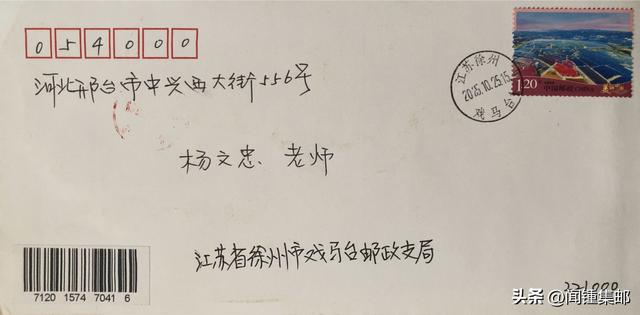 054000
河北邢台市中兴西大街556号
杨文忠 老师
江苏省徐州市戏马台邮政支局
221000
江苏徐州
2025.10.25.15
戏马台
1.20
中国邮政 CHINA
7120 1574 7041 6
头条 @闻锺集邮